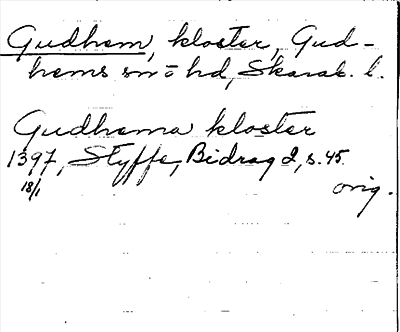 Gudhem, kloster, Gud-
hems sn o hd, Skarab. l.
Gudhema kloster
1397, Styffe, Bidrag 2, s. 45.
18/1 orig.